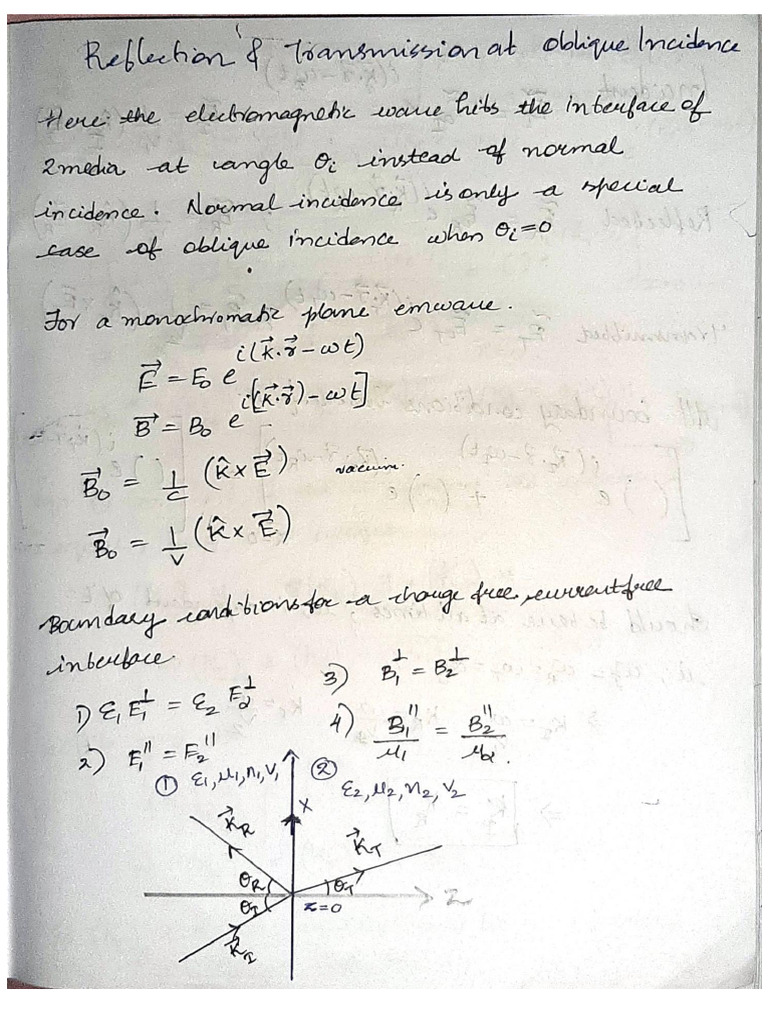 Reflection & Transmission at oblique Incidence
Here the electromagnetic wave hits the interface of
2 media at angle θi instead of normal
incidence. Normal incidence is only a special
case of oblique incidence when θi=0
For a monochromatic plane emwave.
E⃗ = E₀ e^{i(k⃗.r⃗ - ωt)}
B⃗ = B₀ e^{i[(k⃗.r⃗) - ωt]}
B⃗₀ = 1/c (k̂ × E⃗) vacuum.
B⃗₀ = 1/v (k̂ × E⃗)
Boundary conditions for a charge free, current free
interface.
1) ε₁ E₁^⊥ = ε₂ E₂^⊥
2) E₁^{||} = E₂^{||}
3) B₁^⊥ = B₂^⊥
4) B₁^{||}/μ₁ = B₂^{||}/μ₂.
① ε₁, μ₁, n₁, v₁
②
ε₂, μ₂, n₂, v₂
x
k⃗_R
k⃗_T
θ_R
θ_T
z
θ_I
z=0
k⃗_I